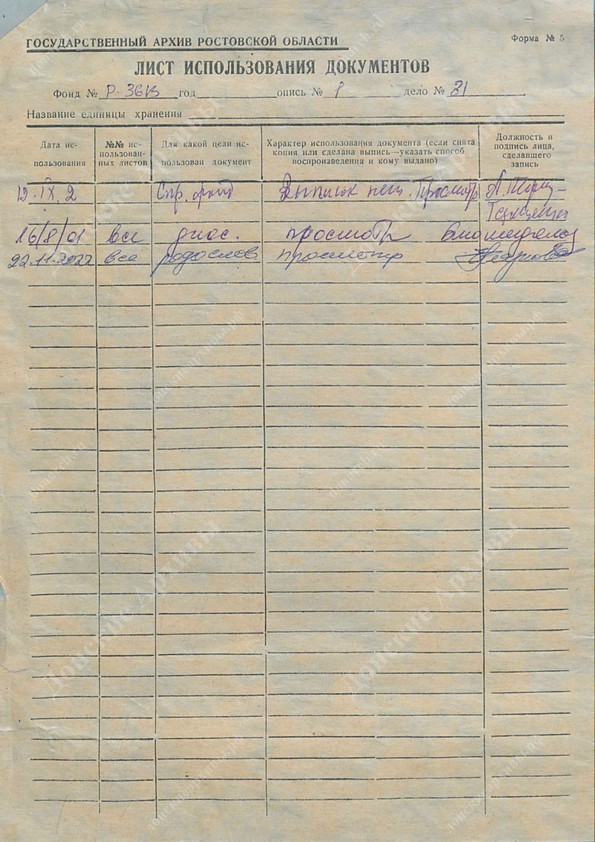 ГОСУДАРСТВЕННЫЙ АРХИВ РОСТОВСКОЙ ОБЛАСТИ
Форма № 5
ЛИСТ ИСПОЛЬЗОВАНИЯ ДОКУМЕНТОВ
Фонд № Р-3613 год опись № 1 дело № 21
Название единицы хранения
Дата использования
№№ использованных листов
Для какой цели использован документ
Характер использования документа (если снята копия или сделана выпись—указать способ воспроизведения и кому выдано)
Должность и подпись лица, сделавшего запись
Просмотр
16/8/01 все дисс. просмотр
22.11.2022 все родослов просмотр
Донские Архивы